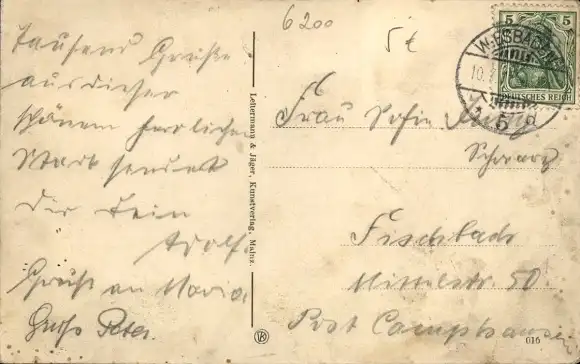 6200
5€
Tausend Grüße
aus dieser
schönen herrlichen
sendet
Dir Dein
Adolf
Gruß an Maria
Gruß Peter.
Leitermann & Jäger, Kunstverlag, Mainz.
5 5
WIESBADEN
10.
DEUTSCHES REICH
Frau Sofie
Schwarz
Fischbach
Mittelstr. 50.
Post Camphausen
616